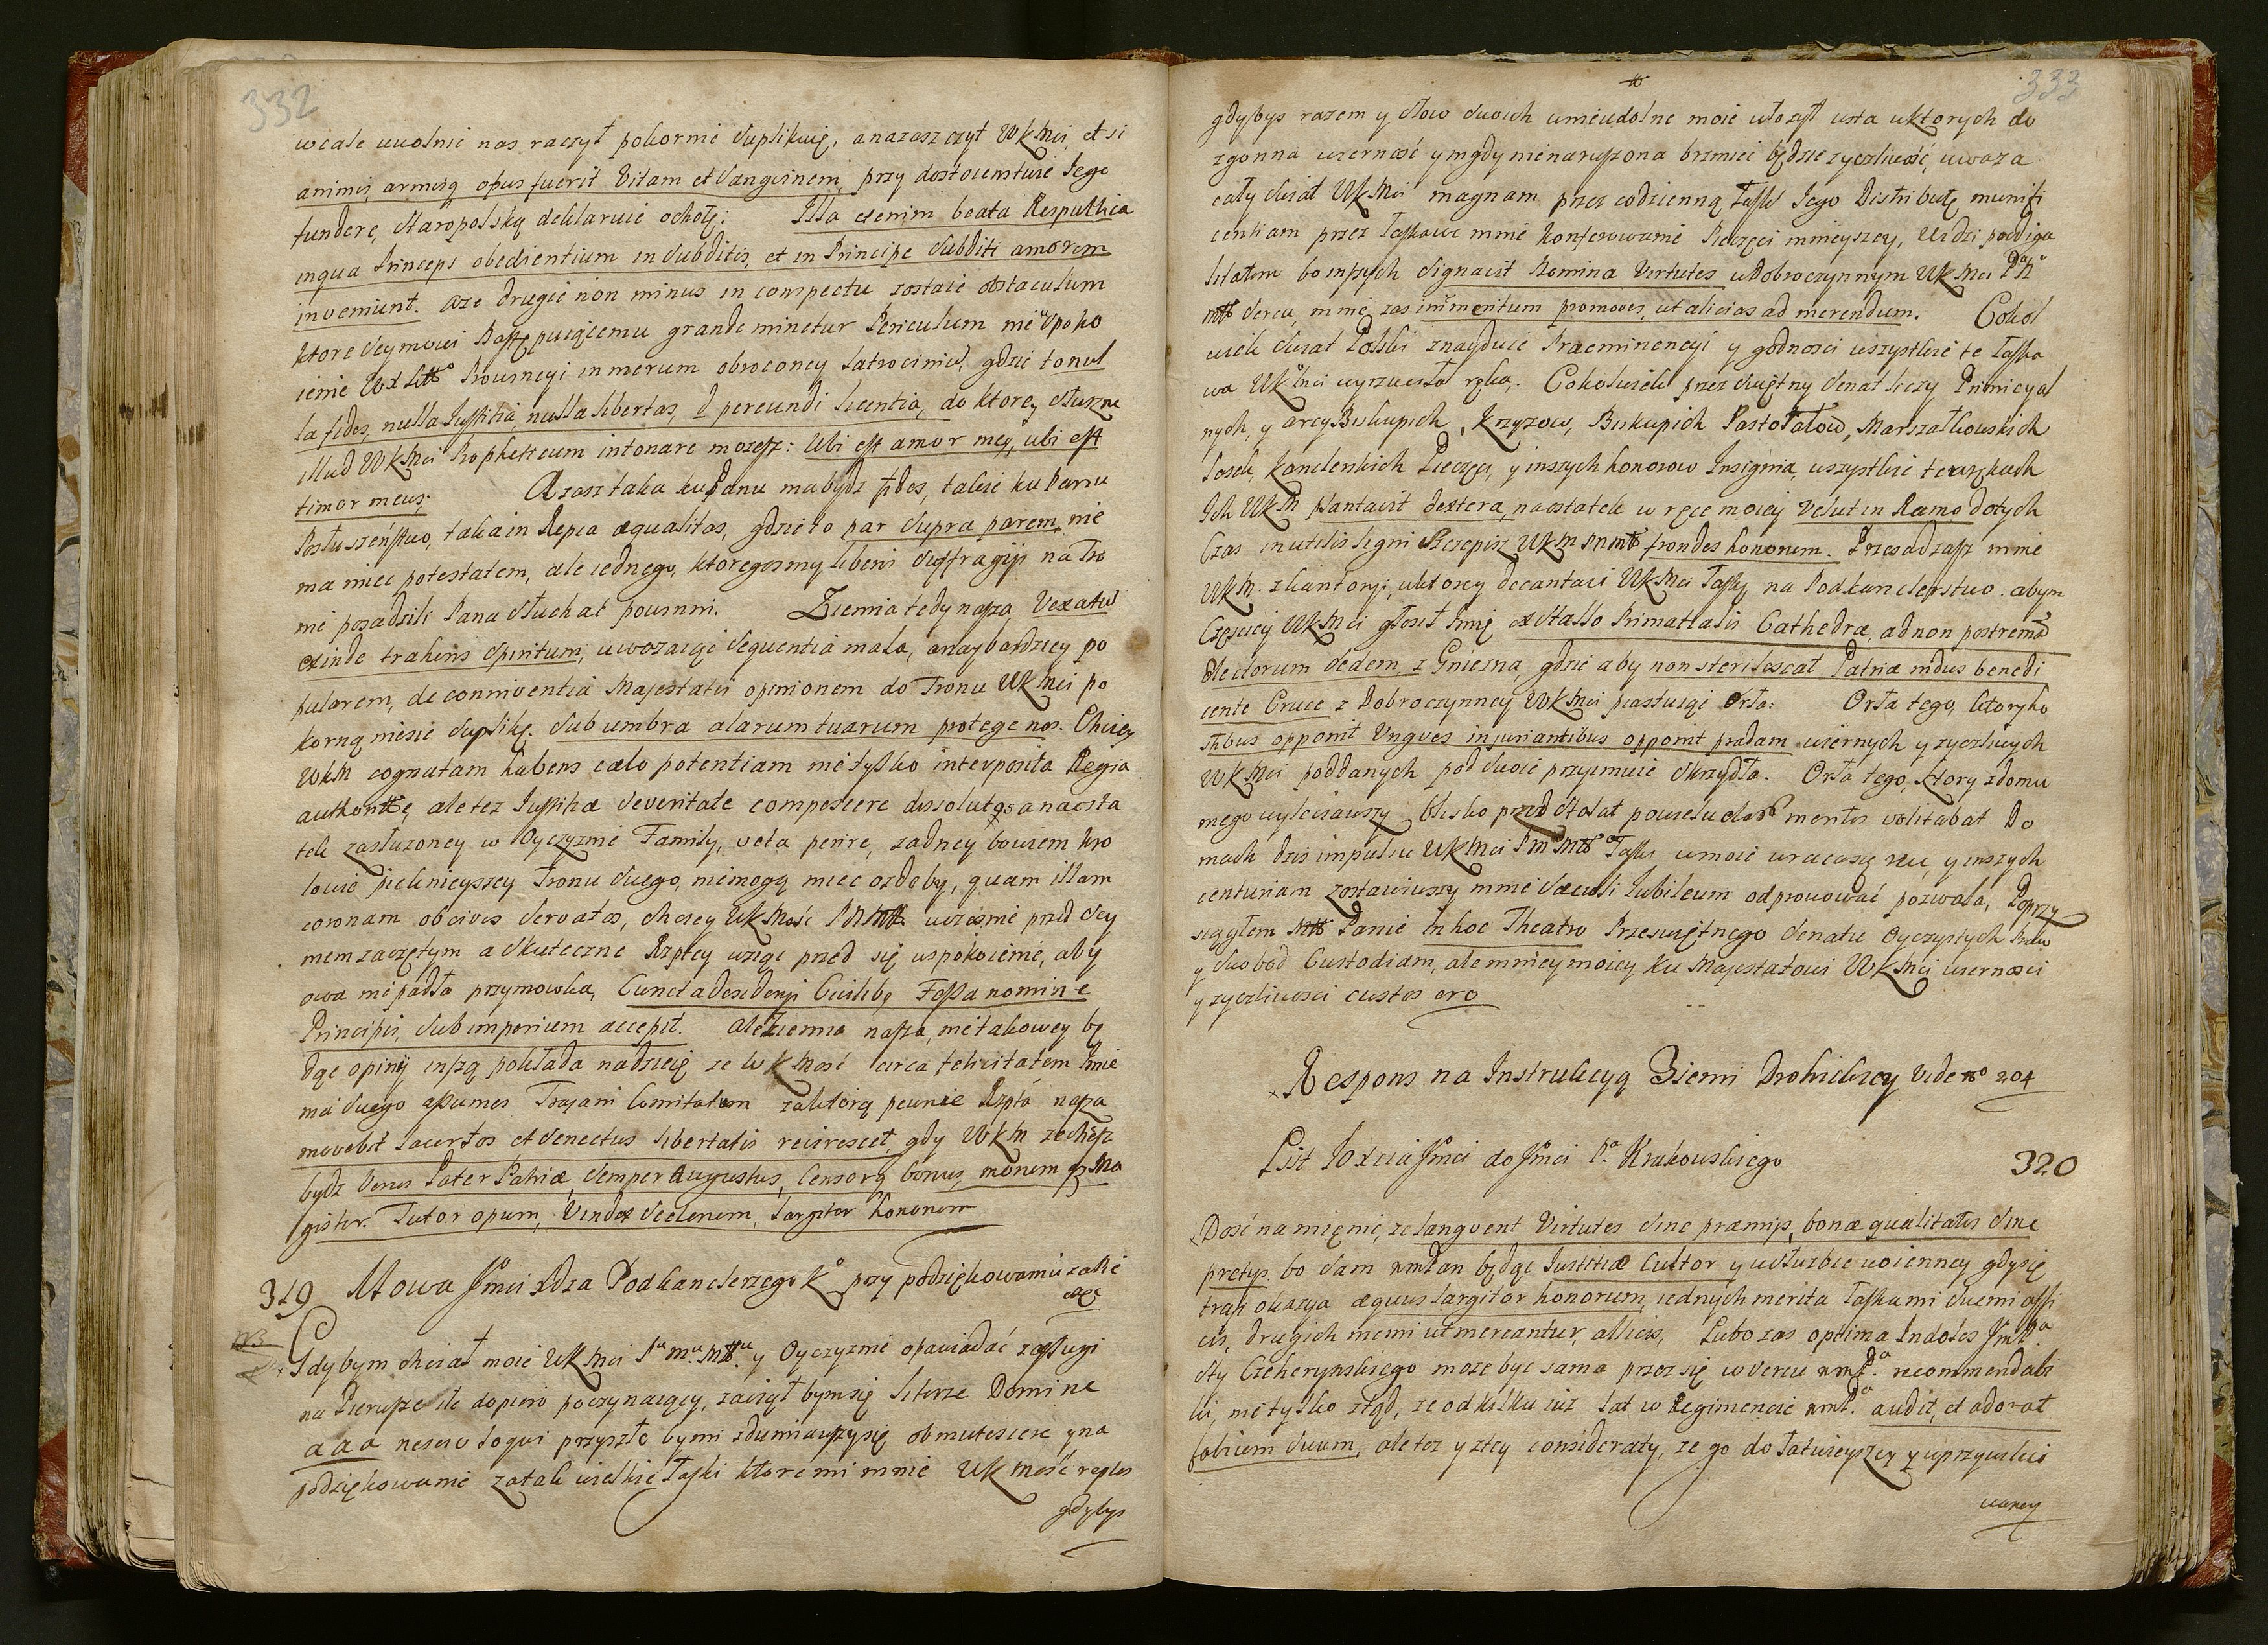 332
wcale uwolnić nas raczył pokornie suplikuię, a nazaszczyt WKMci, et si
animis, armisq opus fuerit Vitam et Sangvinem, przy dostoienstwie Jego
fundere, staropolską deklaruie ochotę: Illa etenim beata Respublica
inqua Princeps obedientium in Subditis, et in Principe Subditi amorem
inveniunt. aze drugie non minus in conspectu zostaie obstaculum
ktore Seymowi Następuiącemu grande minetur Periculum
Prowincyi in merum obroconey latrocinium, gdzie to nul
la fides, nulla Justitia, nulla libertas, pereundi licentia, do ktorey słuszne
illud WKMci Propheticum intonare mozesz: Ubi est amor meq, ubi est
timor meus. Azasz taka ku Panu ma bydz fides, takie ku Panu
Posłuszeństwo, taka in Repca æqualitas, gdzie to par supra parem, nie
ma miec potestatem, ale iednego, ktoregosmy liberis suffragijs na Tro
nie posadzili Pana słuchać powinni. Ziemia tedy nasza Vexatu
exinde trahens Spiritum, uwazaiąc sequentia mala, a naybardziey po
pularem, de conniventia Majestatis opinionem do Tronu WKMci po
korną niesie suplikę. Sub umbra alarum tuarum protege nos. Chciey
WKM cognatam habens cælo potentiam nie tylko interposita Regia
ale tez Justitiæ Severitate compescere dissolutos a naosta
tek zasłuzoney w Oyczyznie Familij, veta perire, zadney bowiem Kro
lowie piekniejszey Tronu swego, niemogą miec ozdoby, quam illam
coronam ob cives servatos, chciey WKMosć wczesnie przed Sey
mem zaczętym a skuteczne Rzptey wziąć przed się uspokoienie, aby
owa nie padła przymowka, Cuncta Fessa nomine
Principis, sub imperium accepit. ale Ziemia nasza, nie takowey bę
dąc opinij inszą pokłada nadzieię ze WKMosć circa felicitatem Jmie
nia swego assumes Trajani Comitatem za ktorą pewnie Rzpta nasza
movebit lacertos et Senectus libertatis revirescet gdy WKM zechcesz
bydz Verus Pater Patriæ, Semper Augustus, Censorq bonus, morum q Ma
gister. Tutor opum, Vindex Scelerum, largitor honorum
319 Mowa Jmci Xdza Podkanclerzego Kº przy podziękowaniu zaPie
częć
NB
Gdybym chciał moie WKMci y Oyczyznie opowiadać zasługi
na Pierwsze ile dopiero poczynaiący, zaciął bym się literze Domine
a a a nescio loqui przyszło by mi zdumiawszy się obmutescere y na
podziękowanie za tak wielkie łaski ktoremi mnie WKMość reples
gdybys

333
gdybys razem y słow swoich w nieudolne moie włozył usta w ktorych do
zgonna wierność y nigdy nienaruszona brzmieć będzie zyczliwość, uwaza
cały swiat WKMci magnam przez codzienną łaski Jego Distributę munifi
centiam przez łaskawe mnie konferowanie Pieczęci mnieyszey, Widzi prodiga
litatem bo inszych signavit Nomina Virtutes w dobroczynnym WKMci
sercu mnie zas immeritum promoves, ut alicias ad merendum. Cokol
wiek swiat Polski znayduie Præminencyi y godnosci wszystkie te łaska
wa WKMci wyrzuciła ręka. Cokolwiek przez swiętny senat liczy Primicyal
nych, y arcyBiskupich, Krzyzow, Biskupich Pastorałow, Marszałkowskich
lasek, Kanclerskich Pieczęci, y inszych honorow Insignia, wszystkie te w rękach
Ich WKM plantavit dextera, naostatek w ręce moiey Velut in Ramo dotych
czas inutilis ligni Szczepisz WKM frondes honorum. Przesadzasz mnie
WKM. z kantoryi, w ktorey decantavi WKMci łaskę na Podkanclerstwo. abym
Częsciey WKMci głosił Jmię ex Stallo Primatialis Cathedræ, ad non postremã
Electorum sedem, z Gniezna, gdzie aby non sterilescat Patriæ nidus benedi
cente Cruce z Dobroczynney WKMci piastuiąc Orła: Orła tego, ktory ho
stibus opponit Ungves injuriantibus opponit prædam wiernych y zyczliwych
WKMci poddanych pod swoie przyimuie skrzydła. Orła tego, ktory z domu
mego wyleciawszy blisko przed stolat mentis volitabat Do
mach dzis impulsu WKMci łaski w moie wracasię ręce, y inszych
centuriam zostawiwszy mnie sæculi Jubileum odprawować pozwala, Poprzy
sięgłem Panie in hoc Theatro Przeswiętnego Senatu Oyczystych Praw
y swobod Custodiam, ale mniey moiey ku Majestatowi WKMci wiernosci
y zyczliwosci custos ero
Respons na Instrukcyą Ziemi Drohickiey Vide nº 204
List JoXcia Jmci do Jmci Pª Krakowskiego 320
Dosć na mięnić, ze langvent Virtutes sine præmijs, bonæ qualitates sine
pretijs. bo sam będąc Justitiæ Cultor y w słuzbie woienney gdy się
trafi okazya æquus largitor honorum, iednych merita łaskami swemi affi
cis, drugich niemi ut mereantur, allicis, Lubo zas optima Indoles JmPª
Sty Czehrynskiego moze byc sama przez się w sercu recommendabi
lis, nie tylko ztąd, ze od kilku iuz lat w Regimencie audit, et adorat
Fabium suum, ale tez y ztey consideraty, ze go do łatwieyszey y uprzywilei
waney